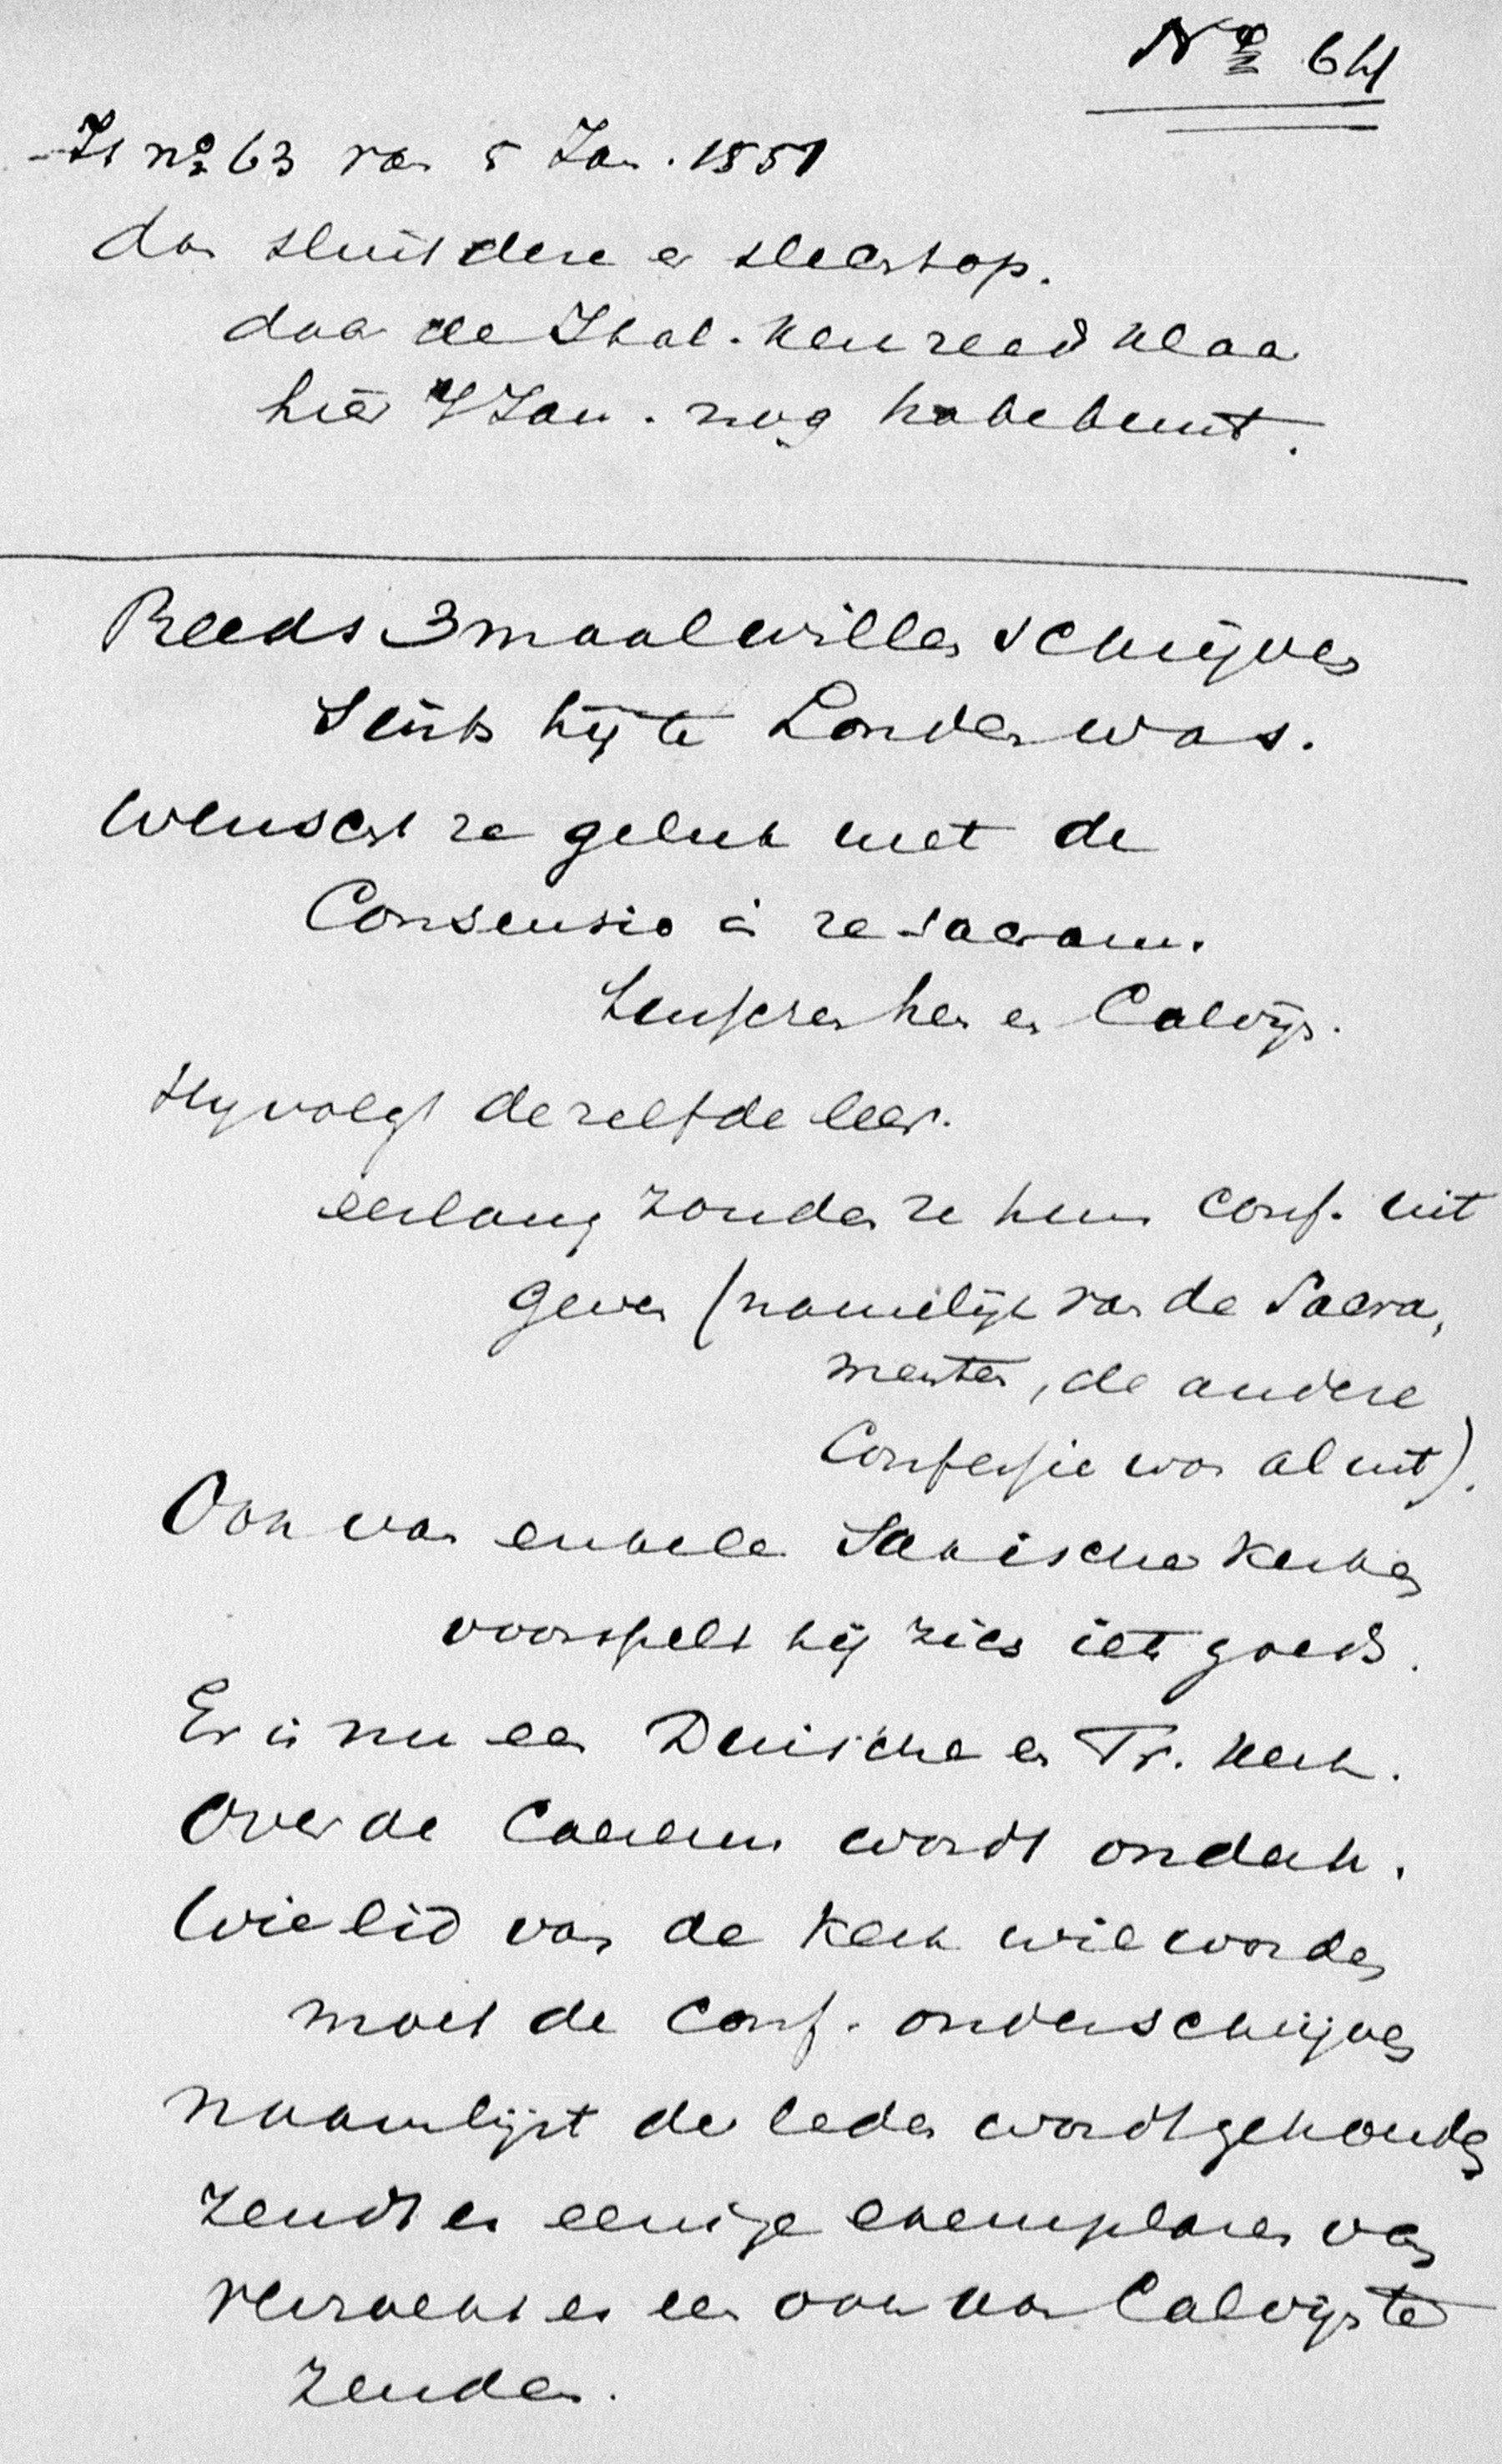 No 64
Is no 63 van 5 Jan. 1551
dan sluit deze er slecht op.
daar de Ital. kerk reeds klaar
hier 7 Jan. nog habebunt.
Reeds 3 maal willen schrijven
sinds hij te Londen was.
Wenscht ze geluk met de
Consensio in re sacram.
tusschen hen en Calvijn.
Hij volgt dezelfde leer.
eerlang zouden ze hun conf. uit
geven (namelijk van de Sacra,
menten, de andere
Confessie was al uit).
Ook van enkele Saxische kerken
voorspelt hij zich iets goeds.
Er is nu een Duitsche en Fr. kerk.
Over de Caerem wordt onderh.
Wie lid van de kerk wil worden
moet de conf. onderschrijven
naamlijst der leden wordt gehouden
zendt er eenige exemplaren van
verzoekt er een ook aan Calvijn te
zenden.